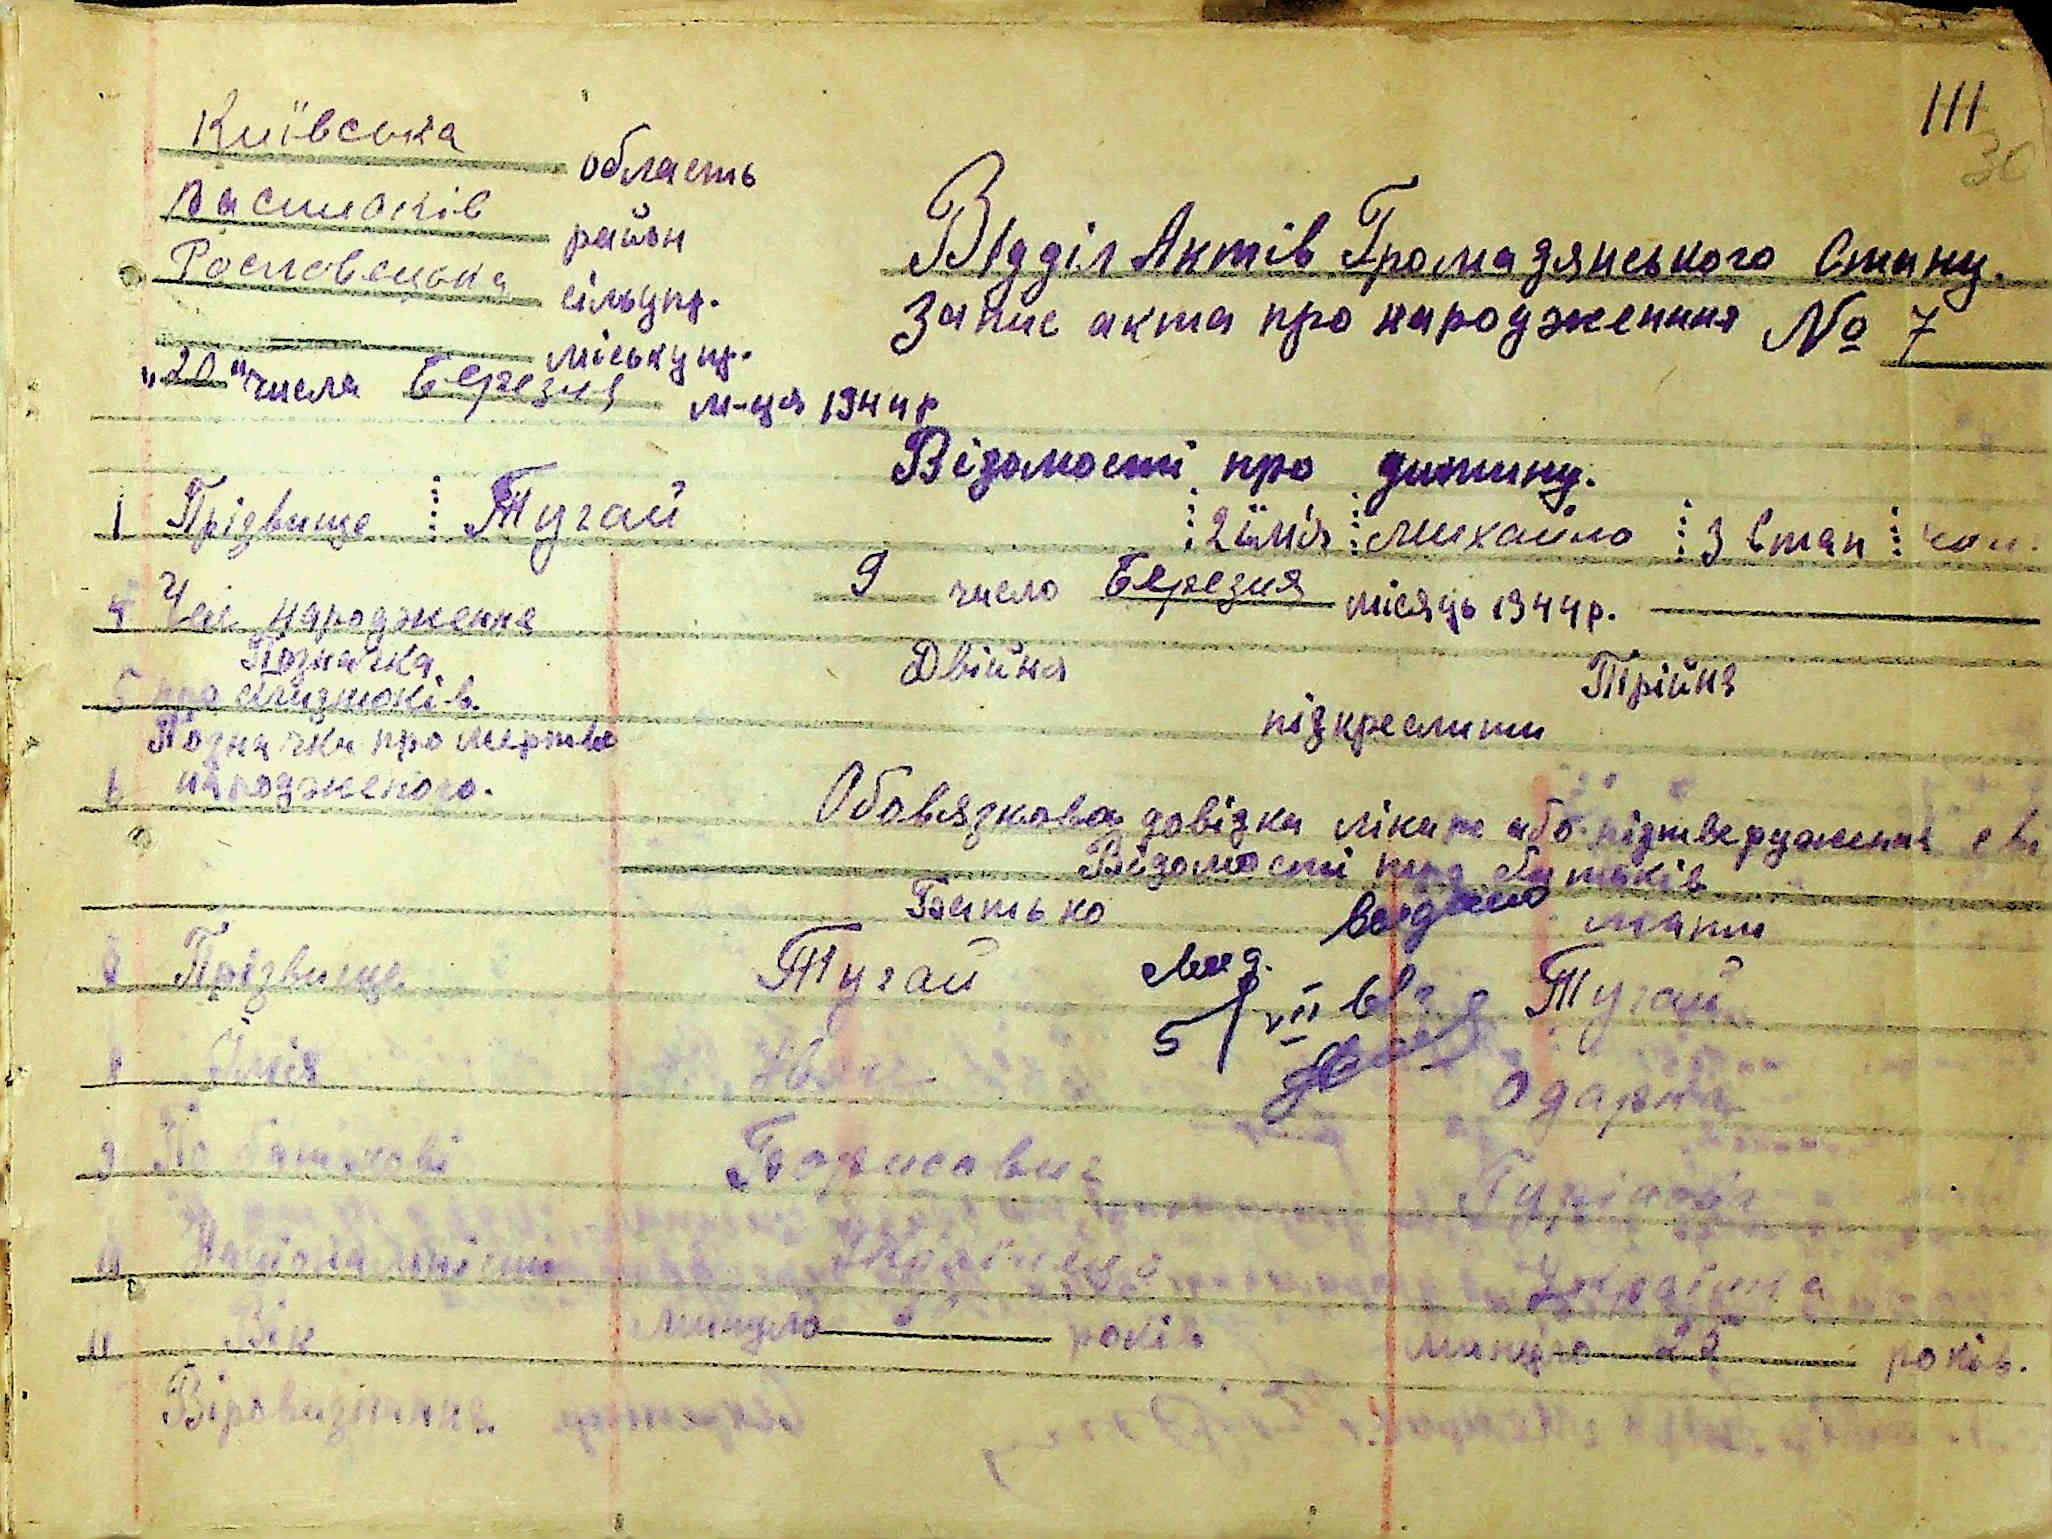 111
30
Київська область
Васильків район
Рославецька сільупр.
міськупр.
"20" числа Березня м-ця 1944 р
Відділ Актів Громадянського Стану.
Запис акта про народження № 7
Відомості про дитину.
1 Прізвище Тугай 2 імія Михайло 3 Стан чол.
4 Час народження 9 число Березня місяць 1944 р.
5 Позначка про близнюків. Двійня Трійня
підкреслити
6 Позначка про мертво народженого.
Обовязкова довізка лікаря або підтвердження
Відомості про батьків
Батько мати
видано
5/VII
Прізвище Тугай Тугай
8 Імія Іван Одарка
9 По батькові Борисович
10 Національність Українець Українка
11 Вік минуло років минуло 22 років.
Віровизнання